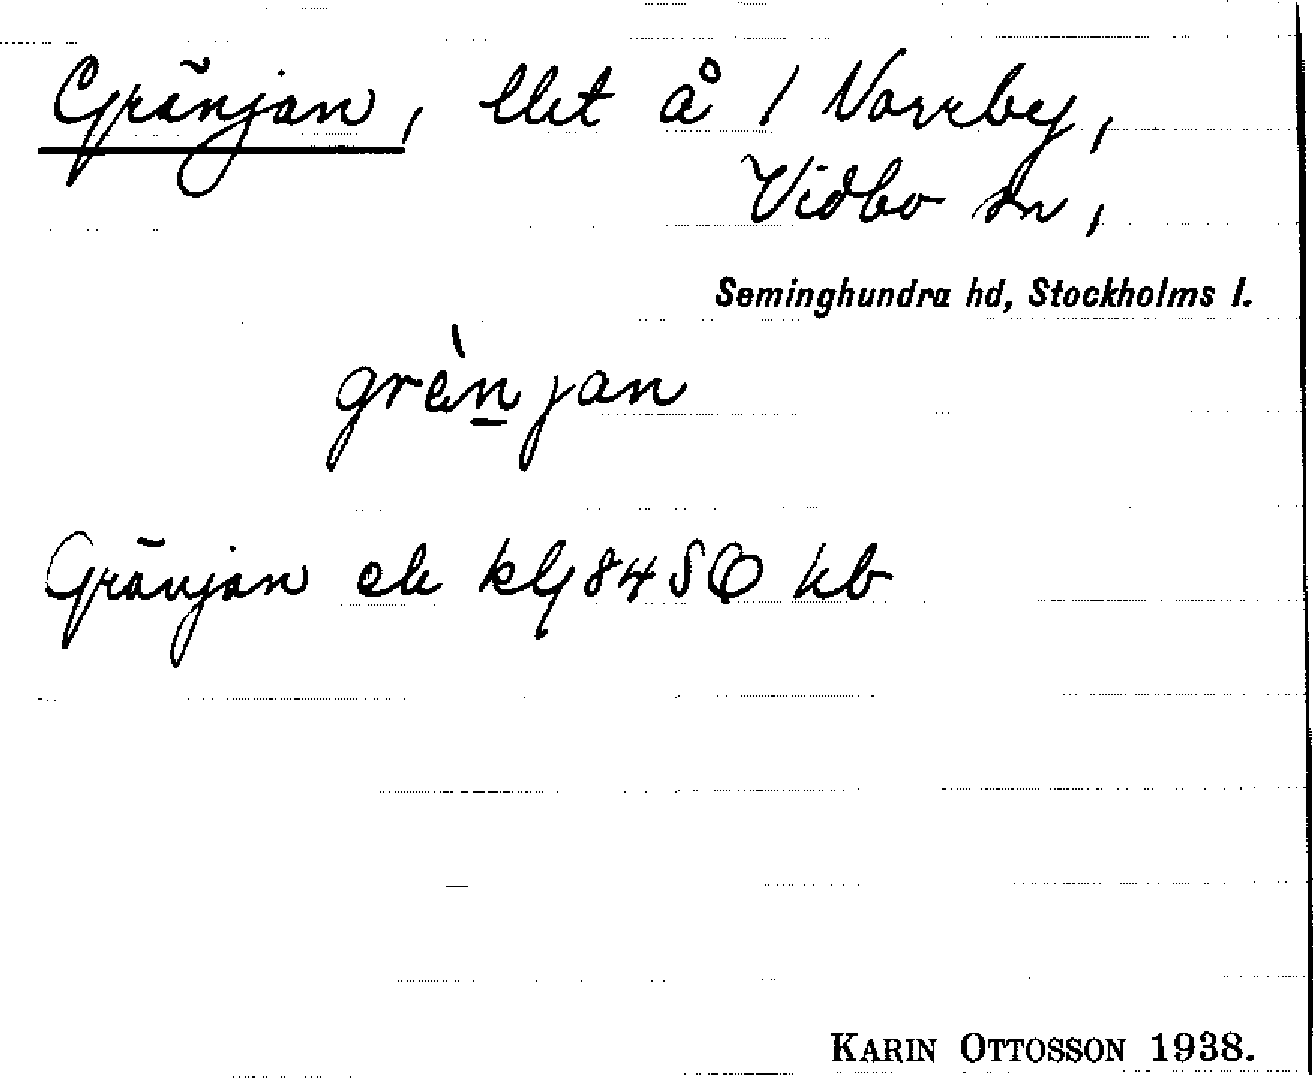 Gränjan, llet å 1 Norrby,
Vidbo sn,
Seminghundra hd, Stockholms l.
grènjan
Gränjan ek
KARIN OTTOSSON 1938.